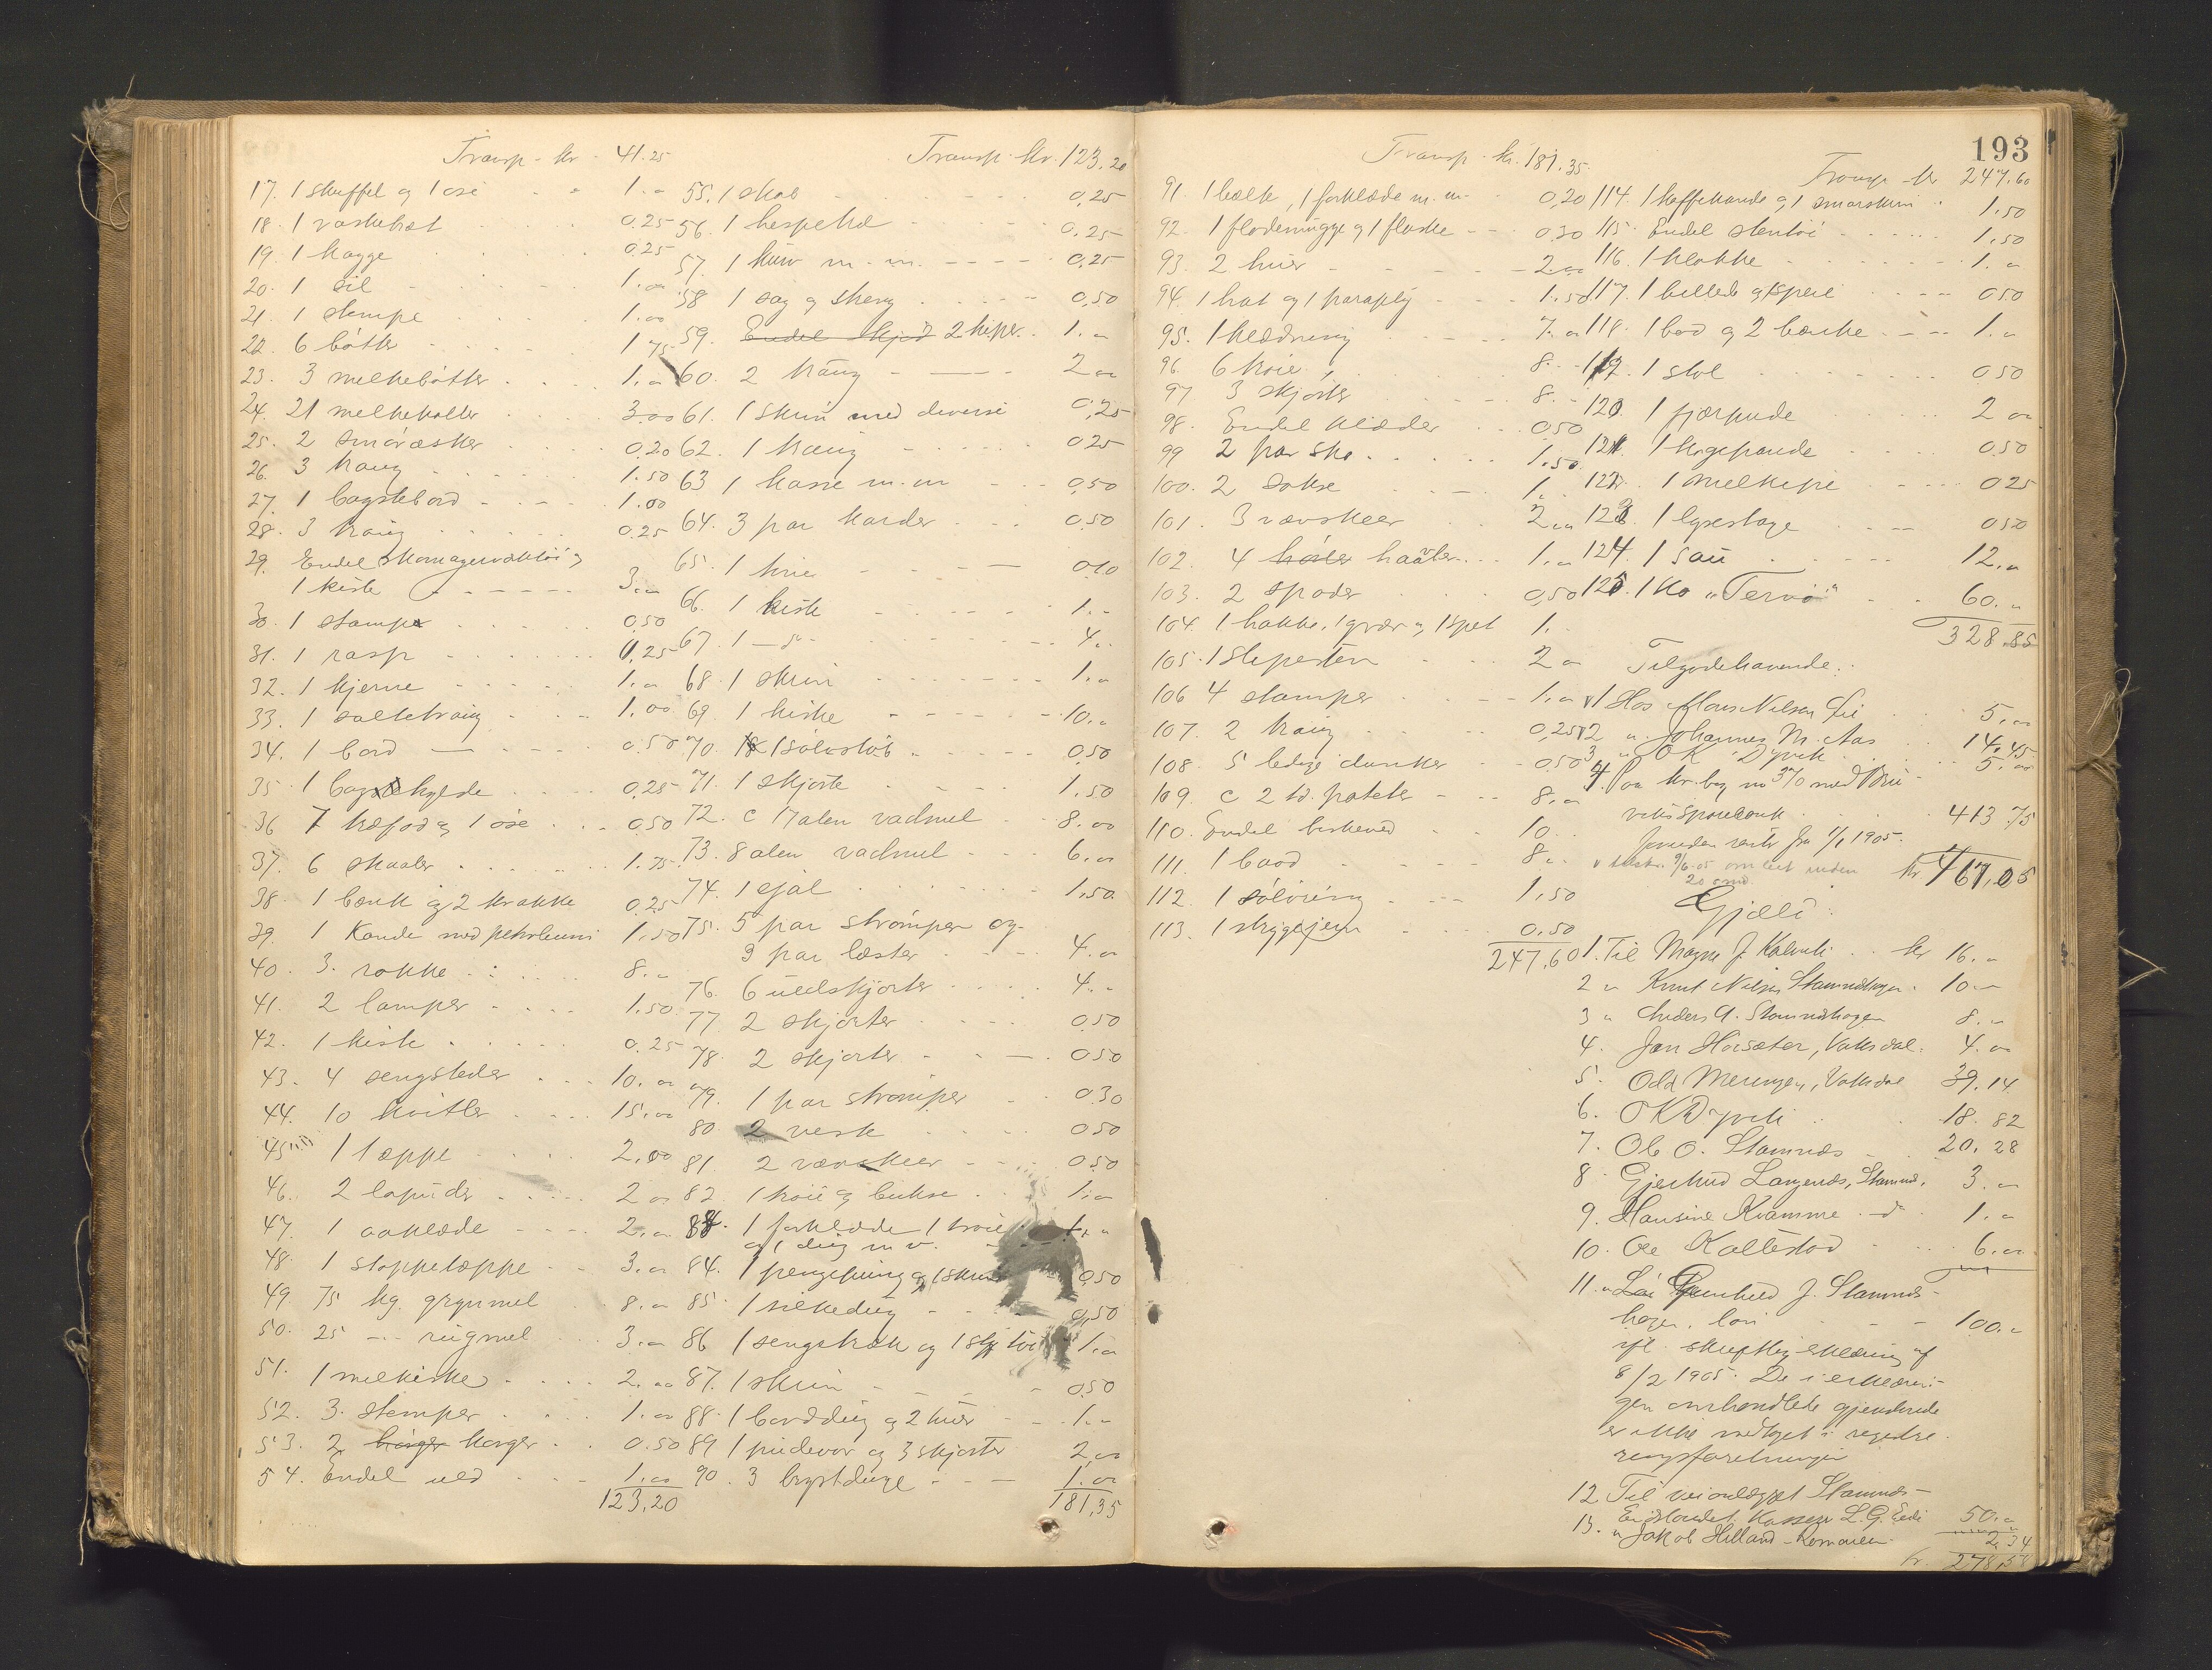 Transp. kr. 41.25
17. 1 skuffel og 1 øse 1.00
18. 1 vaskekat 0.25
19. 1 kagge 0.25
20. 1 sil 1.00
21. 1 stempe 1.00
22. 6 bøtter 1 75
23. 3 melkebøtter 1.00
24. 21 melkekoller 3.00
25. 2 smøræsker 0.20
26. 3 traug 1.50
27. 1 bagstebord 1.00
28. 3 traug 0.25
29. Endel skomagerværktøi og
1 kiste 3.00
30. 1 stamp 0.50
31. 1 rasp 0,25
32. 1 kjerne 1.00
33. 1 saltetraug 1.00
34. 1 bord 0.50
35. 1 bagstehylde 0,25
36 7 træfad og 1 øse 0.50
37. 6 skaaler 1.75
38. 1 bænk og 2 krakke 0.25
39. 1 Kande med petroleum 1.50
40. 3. rokke 8.00
41. 2 lamper 1.50
42. 1 kiste 0.25
43. 4 sengsteder 10.00
44. 10 kvitler 15.00
45 1 tæppe 2,00
46. 2 laputer 2 00
47. 1 aaklæde 2.00
48. 1 stoppetæppe 3.00
49. 75 kg. grynmel 8.00
50. 25 -"- rugmel 3.00
51. 1 melkiste 2.00
52. 3. stamper 1.00
53. 2 korger 0.50
54. Endel ved 1.00
123,20
Transp. kr. 123.20
55. 1 skab 0,25
56. 1 hespetræ 0.25
57. 1 kurv m. m. 0.25
58 1 sag og stang 0,50
59. Endel 2 kiper. 1.00
60. 2 traug 2 00
61. 1 skrin med diverse 0,25
62. 1 traug 0 25
63 1 kasse m.m 0,50
64. 3 par karder 0.50
65. 1 0,10
66. 1 kiste 1.-
67. 1 -do- 4..
68. 1 skrin 1.00
69. 1 kiste 10.00
70. 1 sølvstøb 0,50
71. 1 skjorte 1.50
72. c 17 alen vadmel 8.00
73. 8 alen vadmel 6.00
74. 1 sjal 1,50
75. 5 par strømper og
9 par læster 4.00
76. 6 uldskjorter 4..
77. 2 skjorter 0,50
78. 2 skjorter 0.50
79. 1 par strømper 0.30
80. 2 vesk 0 50
81. 2 vævskeer 0.50
82. 1 trøie og bukse 1.00
83. 1 forklæde 1 trøie 1.00
og 1 dug m v.
84. 1 pengepung og 1 skrin 0,50
85. 1 silkedug 0,50
86 1 sengetræk og 1 1.00
87. 1 skrin 0.50
88. 1 borddug og 2 1.-
89 1 pudevar og 3 skjorter 2,00
90. 3 brystduge 1.00
181,35
193
Transp. kr. 181.35.
91. 1 bælte, 1 forklæde m.m. 0,20
92. 1 flødemugge og 1 flaske 0.30
93. 2 huer 2.00
94. 1 hat og 1 paraply 1.50
95. 1 klædning 7.00
96. 6 trøier 8.-
97 3 skjorter 8.-
98. Endel klæder 0,50
99 2 par sko 1.50
100. 2 sokse 1.
101. 3 vævskeer 2,00
102. 4 1.00
103. 2 spader 0,50
104. 1 hakke, 1 græv og 1 spet 1.
105. 1 slipesten 2 00
106 4 stamper 1.00
107. 2 traug 0,25
108. 5 ledige dunker 0.50
109. c 2 td. poteter 8.00
110. Endel birkeved 10..
111. 1 baad 8..
112. 1 sølvring 1,50
113. 1 strygejern 0.50
247,60
Transp. kr 247.60
114. 1 kaffekande og 1 smørskrin 1.50
115. Endel stentøi 1,50
116. 1 klokke 1.00
117. 1 billede og speil 0 50
118. 1 bord og 2 bænke 1.00
119. 1 stol 0 50
120. 1 fjærpude 2 00
121. 1 kagepande 0.50
122. 1 melkepie 0 25
123. 1 lysestage 0,50
124. 1 sau 12.00
125. 1 ko "Tervø" 60.00
328.85
Tilgodehavende:
1 Hos Mons Nilsen Lie 5.00
2 " Johannes M. Aas 14.45
3 " O K Dyvik 5.00
4 Paa kr. bog no 370 med Bru-
viks Sparebank 413.75
foruden renter fra 1/1 1905.
kr 467,05
Gjæld:
1. Til Magne J. Kalvik kr 16.00
2 " Knut Nilsen Stamneshagen 10.00
3 " Anders A. Stamneshagen 8.00
4. Jan Høisæter, Vaksdal. 4.00
5. Odd Meringen, Vaksdal 39.14
6. O K Dyvik 18.82
7. Ole O. Stamnes 20,28
8 Gjertrud Langenæs, Stamnes, 3.00
9. Hansine Kvamme -d- 1.00
10. Ole Kallestad 6.00
11. " Gunhild J. Stamnes-
hagen, løn 100.00
ifl. skriftlig erklæring af
8/2 1905. De i erklærin-
gen omhandlede gjenstande
er ikke medtaget i registre-
ringsforretningen
12 Til veianlægget Stamnes-
Eidslandet Kasserer L. G. Eide 50.00
13. " Jakob Helland 2,34
kr. 278,58